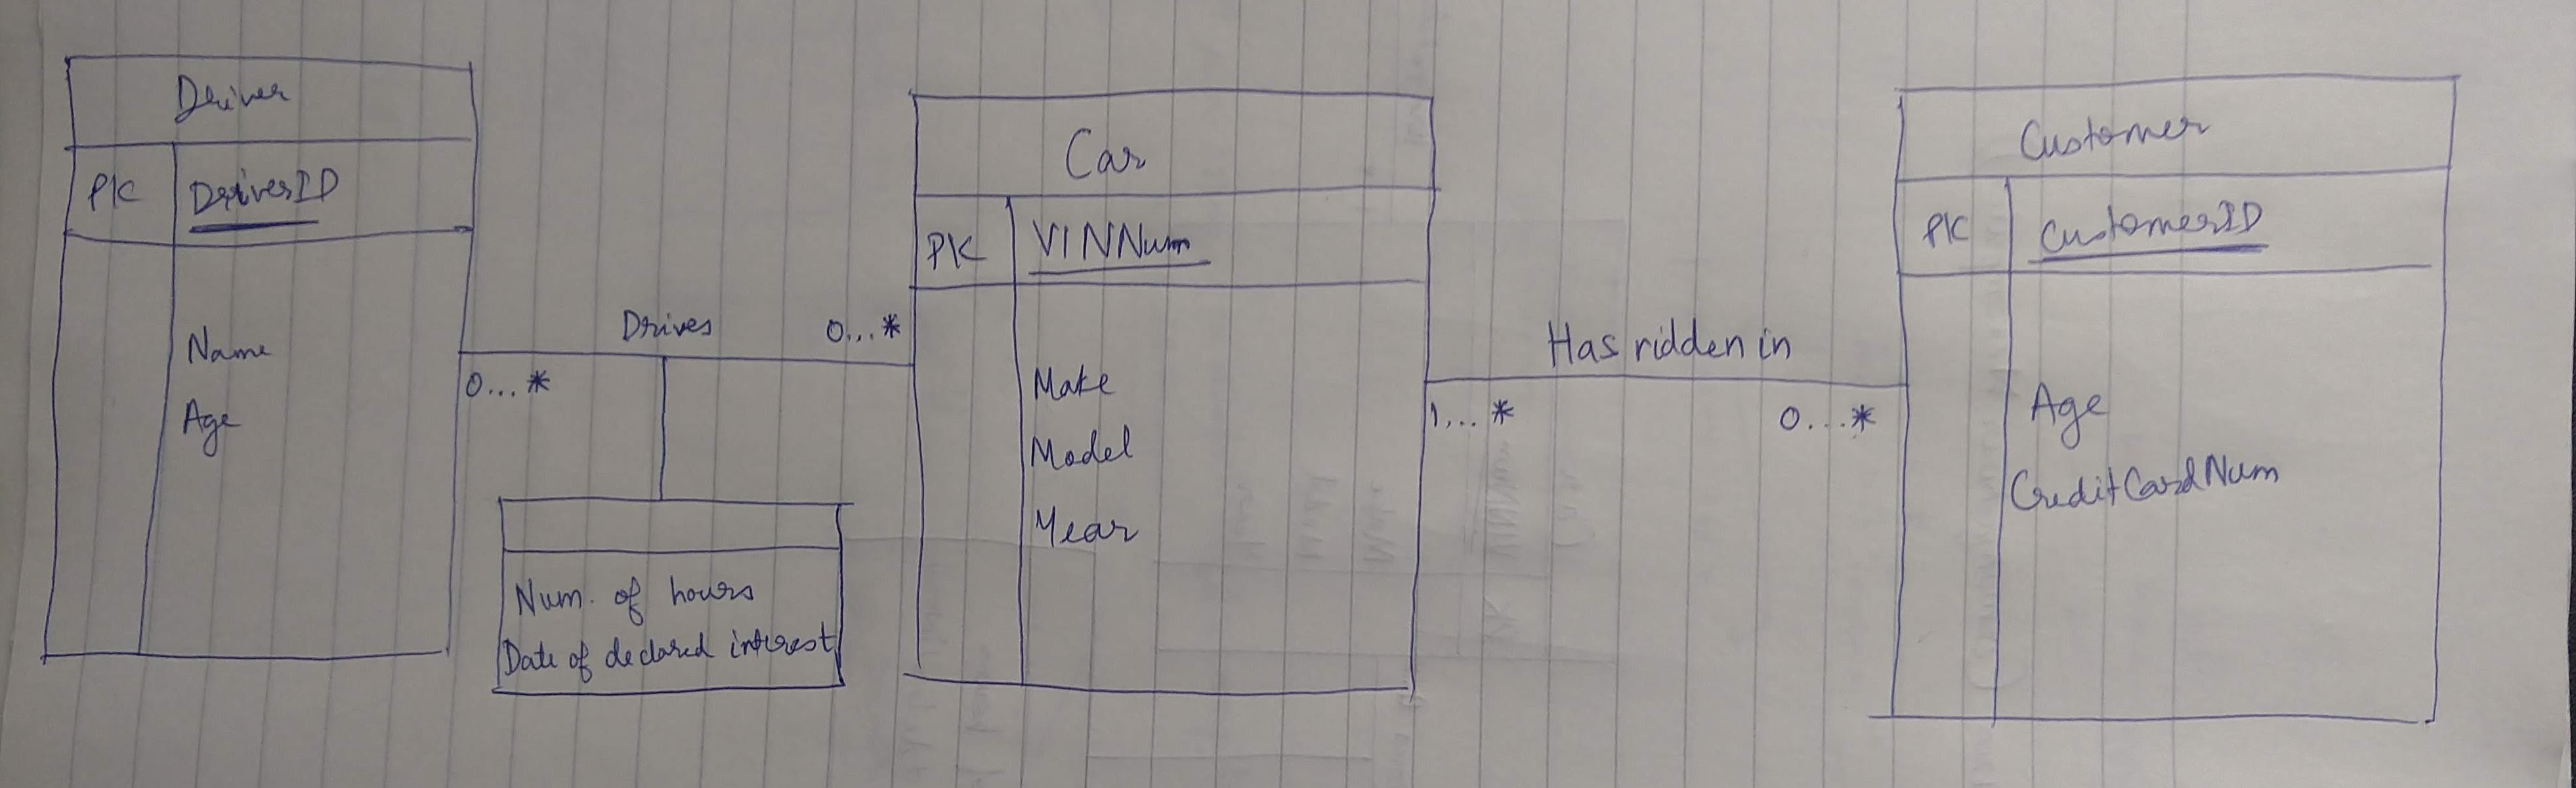 Driver
PK DriverID
Name
Age
Drives
0...*
0...*
Num. of hours
Date of declared interest
Car
PK VINNum
Make
Model
Year
Has ridden in
1...*
0...*
Customer
PK CustomerID
Age
CreditCardNum